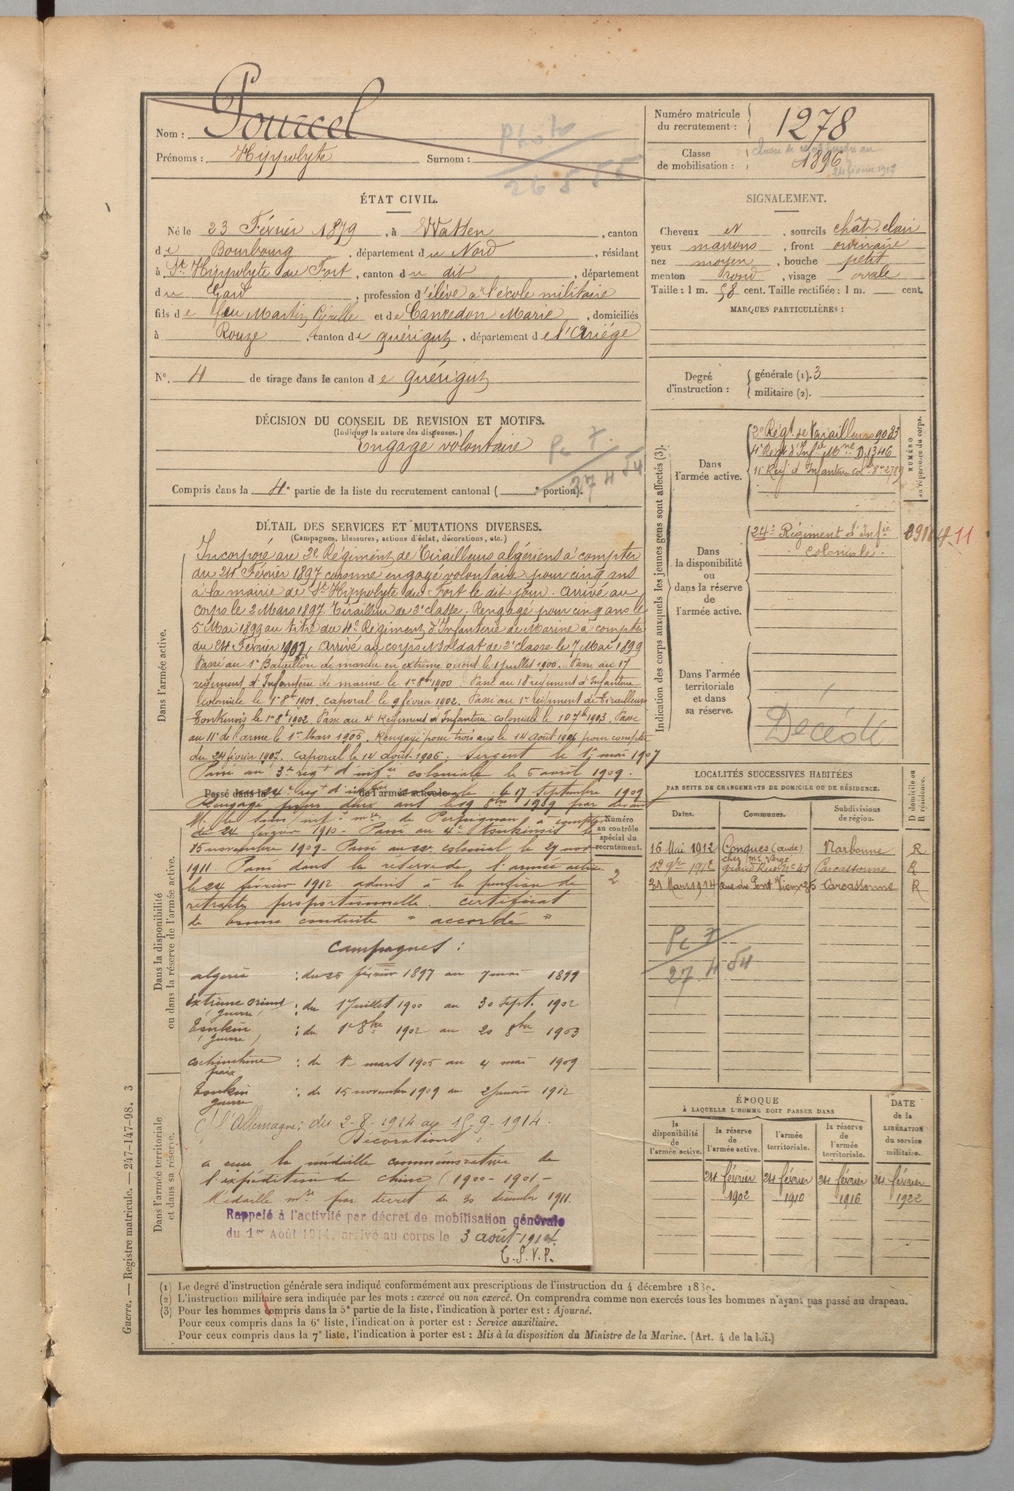 Nom : Pourcel
Prénoms : Hippolyte Surnom :
Photo
Numéro matricule du recrutement : 1278
Classe de mobilisation : 1896
ÉTAT CIVIL.
Né le 23 Février 1879, à Watten, canton
de Bourbourg, département du Nord, résidant
à St Hippolyte du Fort, canton du dit, département
du Gard, profession d'élève à l'école militaire
fils de feu Martin Cirille et de Canredon Marie, domiciliés
à Rouze, canton de quérigut, département de l'Ariège
N°. 4 de tirage dans le canton de quérigut
SIGNALEMENT.
Cheveux N, sourcils chât. clair
yeux marrons, front ordinaire
nez moyen, bouche petit
menton rond, visage ovale
Taille : 1 m. 58 cent. Taille rectifiée : 1 m. cent.
MARQUES PARTICULIÈRES :
Degré d'instruction : générale (1). 3
militaire (2).
DÉCISION DU CONSEIL DE REVISION ET MOTIFS.
(Indiquer la nature des dispenses.)
Engagé volontaire
Compris dans la 4e partie de la liste du recrutement cantonal ( portion).
27 4 54
DÉTAIL DES SERVICES ET MUTATIONS DIVERSES.
(Campagnes, blessures, actions d'éclat, décorations, etc.)
Dans l'armée active.
Incorporé au 2e Régiment de Tirailleurs algériens à compter
du 24 Février 1897 comme engagé volontaire pour cinq ans
à la mairie de St Hippolyte du Fort le dit jour. arrivé au
corps le 2 Mars 1897. Tirailleur de 2e classe. Rengagé pour cinq ans le
5 Mai 1899 au titre du 4e Régiment d'Infanterie de Marine à compter
du 24 Février 1902, arrivé au corps et soldat de 2e classe le 7 Mai 1899
Passé au 1er Bataillon de marche en extrême orient le 1 juillet 1900. Passé au 17
régiment d'Infanterie de marine le 1er 8bre 1900. Passé au 18 régiment d'Infanterie
Coloniale le 1er 8bre 1901. caporal le 9 février 1902. Passé au 1er régiment de Tirailleurs
Tonkinois le 1er 8bre 1902. Passé au 4 Régiment d'Infanterie coloniale le 10 7bre 1903. Passé
au 11e de l'arme le 1er Mars 1905. Rengagé pour trois ans le 14 août 1906 pour compter
du 24 février 1907. caporal le 14 août 1906. Sergent le 1er mai 1907
Passé au 3e regt d'infie coloniale le 5 avril 1909.
Passé dans la de l'armée active
le 17 Septembre 1909
Rengagé pour deux ans le 19 8bre 1909 par devant
M. le sous de Perpignan à compter
du 24 février 1910. Passé au 4e tonkinois le
15 novembre 1909. Passé au 22e colonial le 29 nov
1911. Passé dans la réserve de l'armée active
le 24 février 1912. admis à la pension de
retraite proportionnelle. certificat
de bonne conduite " accordé "
Numéro au contrôle spécial du recrutement.
2
Dans la disponibilité ou dans la réserve de l'armée active.
Campagnes :
algérie : du 25 février 1897 au 7 mai 1899
Extrême orient (guerre) : du 1 juillet 1900 au 30 sept. 1902
Tonkin (guerre) : du 1er 8bre 1902 au 20 8bre 1903
cochinchine paix : du 1er mars 1905 au 4 mai 1909
Tonkin guerre : du 15 novembre 1909 au 2 janvier 1912
C/ l'Allemagne : du 2-8-1914 au 15-9-1914.
Décorations :
a reçu la médaille commémorative de
l'expédition de chine (1900-1901-
Médaille mre par décret du 30 décembre 1911.
Rappelé à l'activité par décret de mobilisation générale
du 1er Août 1914, arrivé au corps le 3 août 1914.
T.S.V.P.
Dans l'armée territoriale et dans sa réserve.
Indication des corps auxquels les jeunes gens sont affectés (3).
NUMÉRO au répertoire du corps.
Dans l'armée active.
2e Régt de tirailleurs 9083
4e Regt d'Infie Mne D,1346
11e Reg d'Infanterie col
Dans la disponibilité ou dans la réserve de l'armée active.
24e Régiment d'Infie coloniale.
11
Dans l'armée territoriale et dans sa réserve.
Décédé
LOCALITÉS SUCCESSIVES HABITÉES
PAR SUITE DE CHANGEMENTS DE DOMICILE OU DE RÉSIDENCE.
Dates. Communes. Subdivisions de région. D domicile ou R résidence.
16 Mai 1912 Conques (aude) Narbonne R
12 9bre 1912 grand Rue N° 41 Carcassonne R
31 Mars 1914 rue du Pont Vieux 26 Carcassonne R
27 4 54
ÉPOQUE
À LAQUELLE L'HOMME DOIT PASSER DANS
la disponibilité de l'armée active. la réserve de l'armée active. l'armée territoriale. la réserve de l'armée territoriale. DATE de la LIBÉRATION du service militaire.
24 février 1902 24 février 1910 24 février 1916 24 février 1922
(1) Le degré d'instruction générale sera indiqué conformément aux prescriptions de l'instruction du 4 décembre 1889.
(2) L'instruction militaire sera indiquée par les mots : exercé ou non exercé. On comprendra comme non exercés tous les hommes n'ayant pas passé au drapeau.
(3) Pour les hommes compris dans la 5e partie de la liste, l'indication à porter est : Ajourné.
Pour ceux compris dans la 6e liste, l'indication à porter est : Service auxiliaire.
Pour ceux compris dans la 7e liste, l'indication à porter est : Mis à la disposition du Ministre de la Marine. (Art. 4 de la loi.)
Guerre. — Registre matricule. — 247-147-98. 3